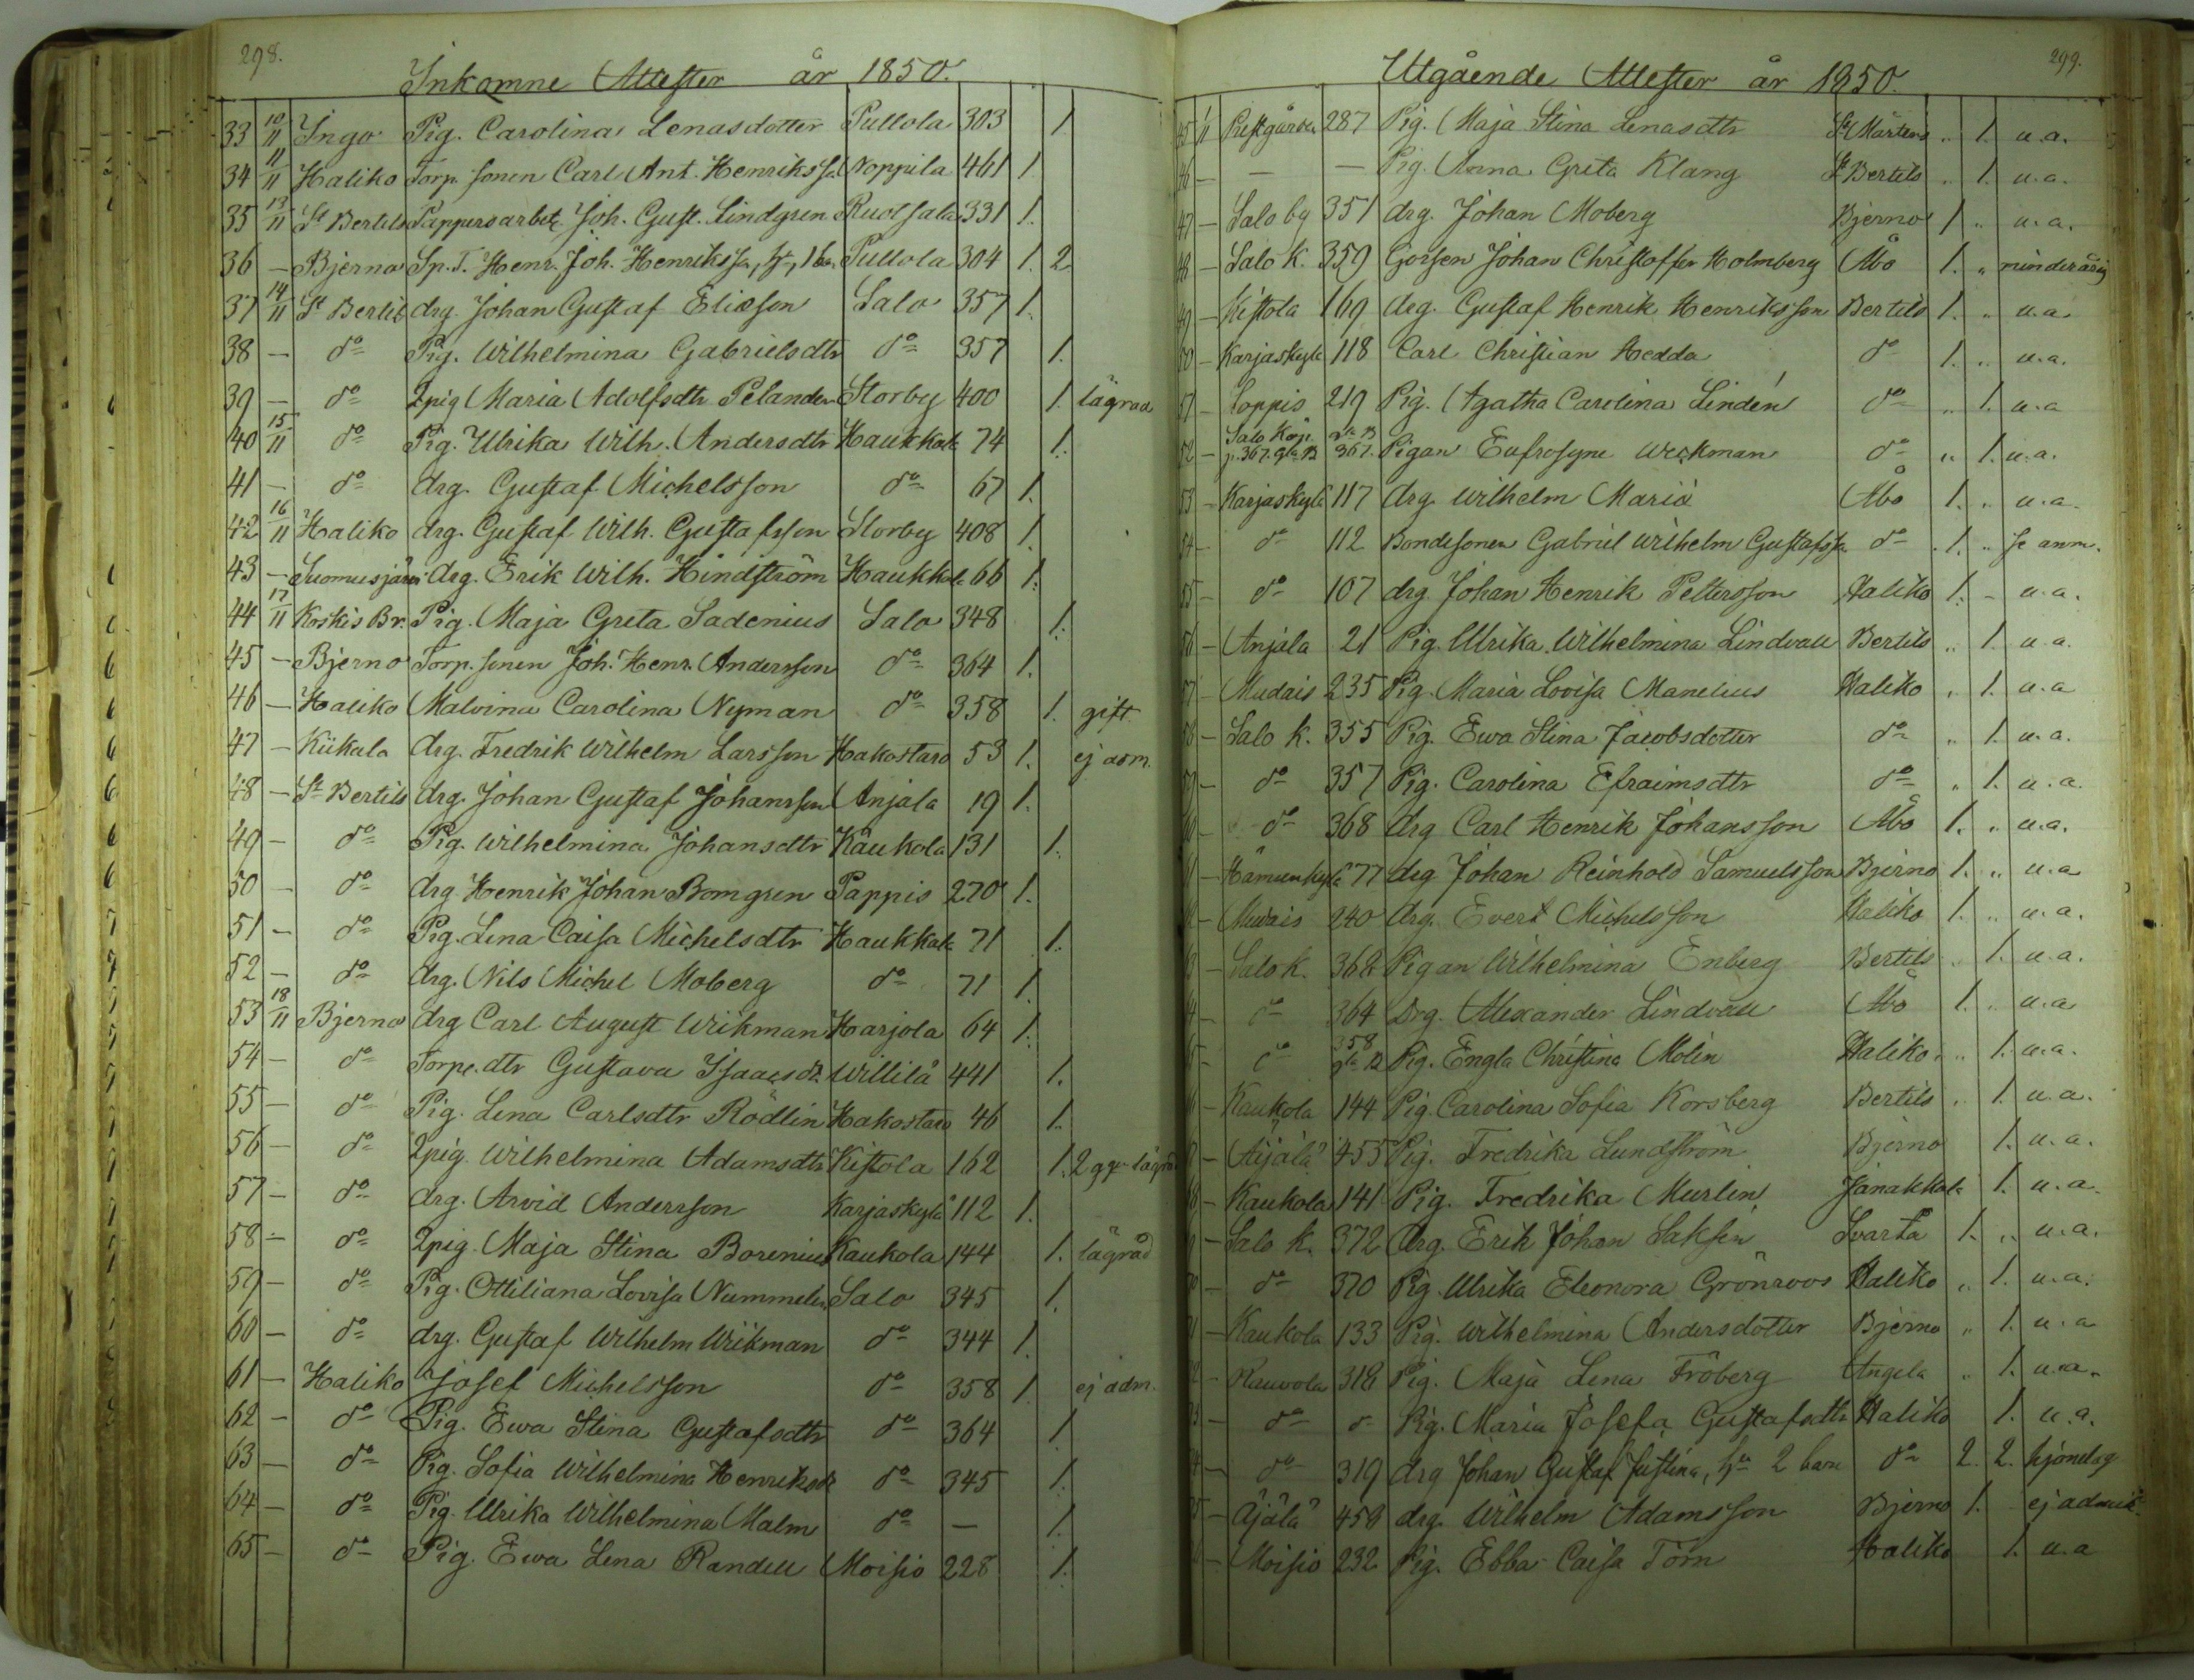 298.
Inkomne Attester år 1850.
33 10/11 Ingo Pig. Carolina Lenasdotter Pullola 303 1
34 11/11 Haliko Torp. sonen Carl Ant. Henrikss. Noppila 461 1
35 13/11 St Bertils Pappersarbet. Joh. Gust. Lindgren Ruotsala 331 1.
36 — Bjerno Sp. T. Henr. Joh. Henrikss., h., 1 barn Pullola 304 1. 2
37 14/11 St Bertils drg. Johan Gustaf Eliasson Salo 357 1.
38 — do Pig. Wilhelmina Gabrielsdtr do 357 1.
39 — do Qpig Maria Adolfsdtr Pelander Storby 400 1. lägrad
40 15/11 do Pig. Ulrika Wilh. Andersdtr Haukkala 74 1.
41 — do drg. Gustaf Michelsson do 67 1.
42 16/11 Haliko drg. Gustaf Wilh. Gustafsson Storby 408 1.
43 — Suomusjärvi drg. Erik Wilh. Hindström Haukkala 66 1.
44 17/11 Koskis Br. Pig. Maja Greta Sadenius Salo 348 1.
45 — Bjerno Torp. sonen Joh. Henr. Andersson do 364 1.
46 — Haliko Malvina Carolina Nyman do 358 1. gift
47 — Kiikala drg. Fredrik Wilhelm Larsson Hakostaro 53 1. ej adm.
48 — St Bertils drg. Johan Gustaf Johansson Anjala 19 1.
49 — do Pig. Wilhelmina Johansdtr Kaukola 131 1.
50 — do drg Henrik Johan Bomgren Pappis 270 1.
51 — do Pig. Lena Caisa Michelsdtr Haukkala 71 1.
52 — do drg. Nils Michel Moberg do 71 1
53 18/11 Bjerno drg Carl August Wikman Harjola 64 1.
54 — do Torpe. dtr Gustava Isaacsdr. Willilä 441 1.
55 — do Pig. Lena Carlsdtr Rödlin Hakostaro 46 1.
56 — do Qpig. Wilhelmina Adamsdtr Kistola 162 1. 2 gg. lägrad
57 — do drg. Arvid Andersson Karjaskylä 112 1.
58 — do Qpig. Maja Stina Borenius Kaukola 144 1. lägrad
59 — do Pig. Ottiliana Lovisa Nummelin Salo 345 1.
60 — do drg. Gustaf Wilhelm Wikman do 344 1.
61 — Haliko Josef Michelsson do 358 1. ej adm.
62 — do Pig. Ewa Stina Gustafsdtr do 364 1
63 — do Pig. Sofia Wilhelmina Henriksdr do 345 1.
64 — do Pig. Ulrika Wilhelmina Malm do — 1.
65 — do Pig. Ewa Lena Randell Moisio 228 1.
299.
Utgående Attester år 1850.
45 11 Prestgården 287 Pig. Maja Stina Lenasdtr St Mårtens „ 1. u.a.
46 — — — Pig. Anna Greta Klang St Bertils „ 1. u.a.
47 — Salo by 351 drg. Johan Moberg Bjerno 1 „ u.a.
48 — Salo k. 359 Gossen Johan Christoffer Holmberg Åbo 1. „ minderårig
49 — Kistola 169 drg. Gustaf Henrik Henriksson Bertils 1. „ u.a
50 — Karjaskylä 118 Carl Christian Hedda do 1. „ u.a.
51 — Loppis 219 Pig. Agatha Carolina Lindén do „ 1. u.a
52 — Salo Köp. p. 367. gla B 367. Pigan Eufrosyne Weckman do „ 1. u.a.
53 — Karjaskylä 117 drg. Wilhelm Maria Åbo 1. „ u.a.
54 — do 112 Bondesonen Gabriel Wilhelm Gustafss. do 1. „ se anm.
55 — do 107 drg Johan Henrik Pettersson Haliko 1. — u.a.
56 — Anjala 21 Pig. Ulrika Wilhelmina Lindvall Bertils „ 1. u.a.
57 — Mudais 235 Pig. Maria Lovisa Manelius Haliko „ 1. u.a
58 — Salo k. 355 Pig. Ewa Stina Jacobsdotter do „ 1. u.a.
59 — do 357 Pig. Carolina Efraimsdtr do „ 1. u.a.
60 — do 368 drg Carl Henrik Johansson Åbo 1. „ u.a.
61 — Hämeenkylä 77 drg Johan Reinhold Samuelsson Bjerno 1. „ u.a
62 — Mudais 240 drg. Evert Michelsson Haliko 1. „ u.a.
63 — Salo k. 362 Pigan Wilhelmina Enberg Bertils „ 1. u.a.
64 — do 364 Drg. Alexander Lindvall Åbo 1. „ u.a
65 — do 358 gla B Pig. Engla Christina Molin Haliko „ 1. u.a.
66 — Kaukola 144 Pig. Carolina Sofia Korsberg Bertils „ 1. u.a.
67 — Äijälä 455 Pig. Fredrika Lundström Bjerno 1. u.a.
68 — Kaukola 141 Pig. Fredrika Murlin Janakkala 1. u.a.
69 — Salo k. 372 drg. Erik Johan Saksen Svarta 1. „ u.a.
70 — do 370 Pig. Ulrika Eleonora Grönroos Haliko „ 1. u.a.
71 — Kaukola 133 Pig. Wilhelmina Andersdotter Bjerno „ 1. u.a
72 — Rauvola 318 Pig. Maja Lena Fröberg Angela „ 1. u.a.
73 — do do Pig. Maria Josefa Gustafsdtr Haliko 1. u.a.
74 — do 319 drg Johan Gustaf Justina, hu 2 barn do 2. 2. hjondag
75 — Äjälä 458 drg. Wilhelm Adamsson Bjerno 1. ej admis.
76 — Moisio 232 Pig. Ebba Caisa Törn Haliko 1. u.a